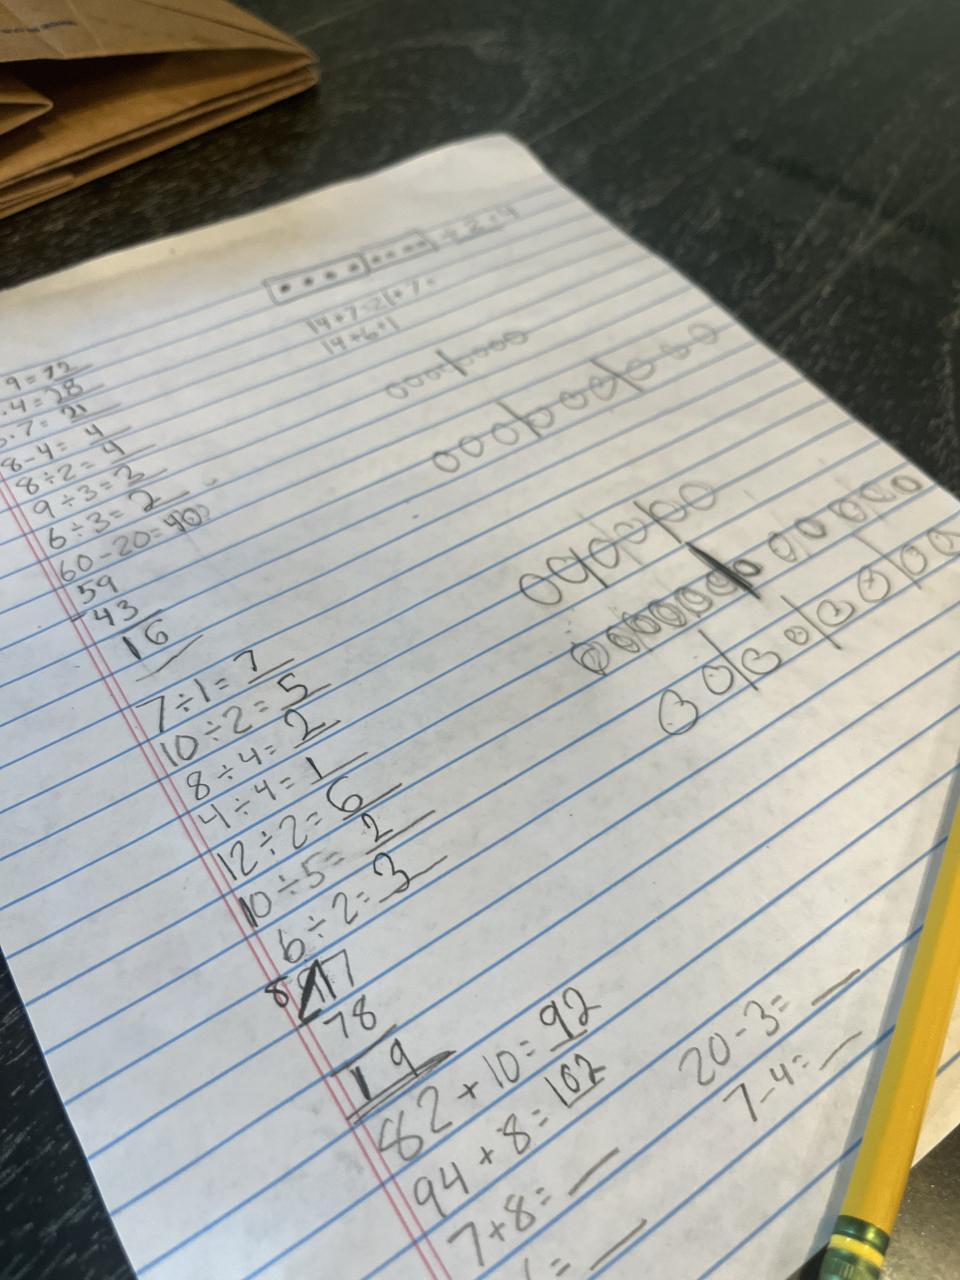 ÷ 2 = 4
14+7=21+7=
14+6+1
9 = 72
· 4 = 28
· 7 = 21
8 - 4 = 4
8 ÷ 2 = 4
9 ÷ 3 = 3
6 ÷ 3 = 2
60 - 20 = 40
59
- 43
16
7 ÷ 1 = 7
10 ÷ 2 = 5
8 ÷ 4 = 2
4 ÷ 4 = 1
12 ÷ 2 = 6
10 ÷ 5 = 2
6 ÷ 2 = 3
8 9 17
- 78
19
82 + 10 = 92
94 + 8 = 102
7 + 8 = __
= __
20 - 3 = __
7 - 4 = __